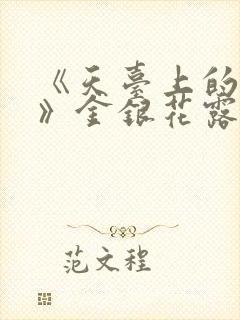 《天臺上的
》金銀花露
范文程